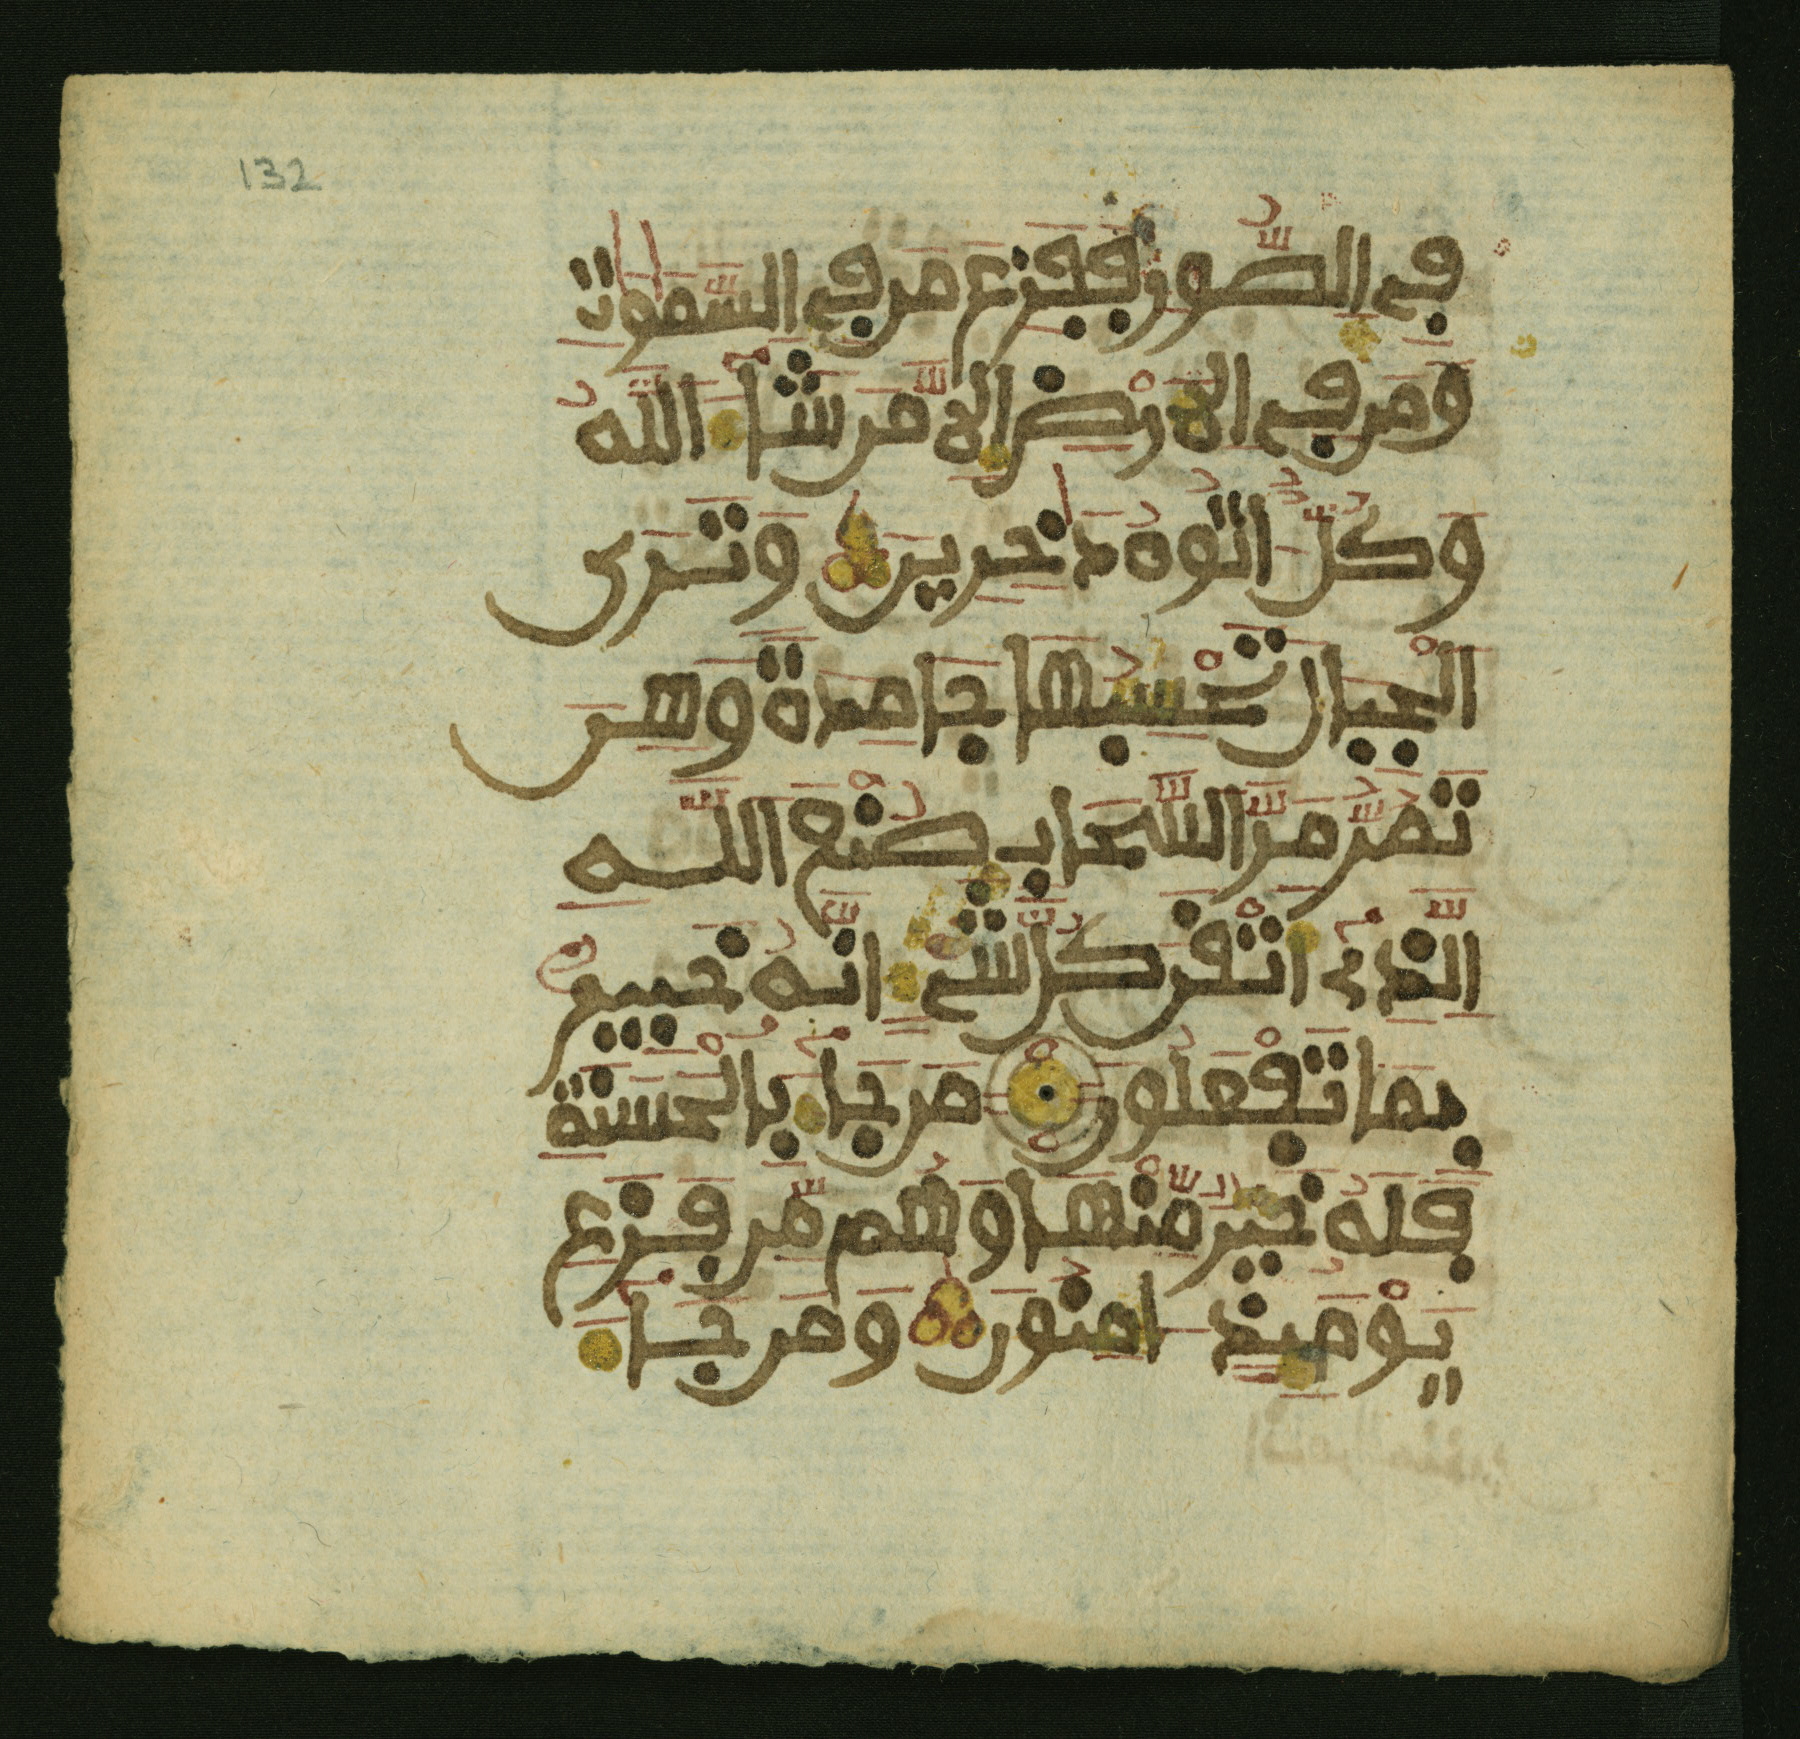 132
في الصُّورِ فَفَزِعَ مَن فِي السَّمَٰوَٰتِ
وَمَن فِي الْأَرْضِ إِلَّا مَن شَاءَ اللَّهُ
وَكُلٌّ ءَاتُوهُ دَٰخِرِينَ وَتَرَى
الْجِبَالَ تَحْسِبُهَا جَامِدَةً وَهِيَ
تَمُرُّ مَرَّ السَّحَابِ صُنْعَ اللَّهِ
الَّذِي أَتْقَنَ كُلَّ شَيْءٍ إِنَّهُ خَبِيرٌ
بِمَا تَفْعَلُونَ مَن جَاءَ بِالْحَسَنَةِ
فَلَهُ خَيْرٌ مِّنْهَا وَهُم مِّن فَزَعِ
يَوْمَئِذٍ ءَامِنُونَ وَمَن جَاءَ